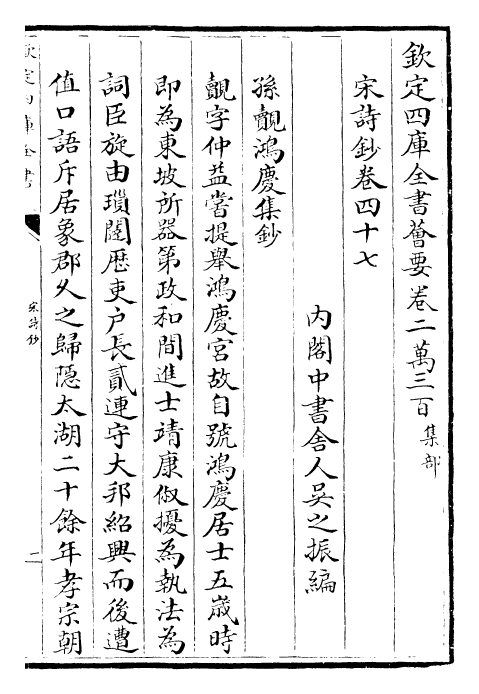 欽定四庫全書薈要卷二萬三百集部
宋詩鈔卷四十七
內閣中書舍人吳之振編
孫覿鴻慶集鈔
覿字仲益嘗提舉鴻慶宮故自號鴻慶居士五歲時
即為東坡所器第政和間進士靖康俶擾為執法為
詞臣旋由瑣闥歷吏户長貳連守大邦紹興而後遭
值口語斥居象郡久之歸隱太湖二十餘年孝宗朝
欽定四庫全書
宋詩鈔